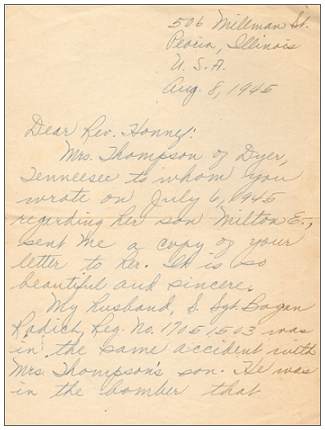 506 Millman St.
Peoria, Illinois
U. S. A.
Aug. 8, 1945
Dear Rev. Honney:
Mrs. Thompson of Dyer,
Tenneesee to whom you
wrote on July 6, 1945
regarding her son Milton E.,
sent me a copy of your
letter to her. It is so
beautiful and sincere.
My husband, S. Sgt. Bogan
Radich, Reg. No. was
in the same accident with
Mrs. Thompson's son. He was
in the bomber that